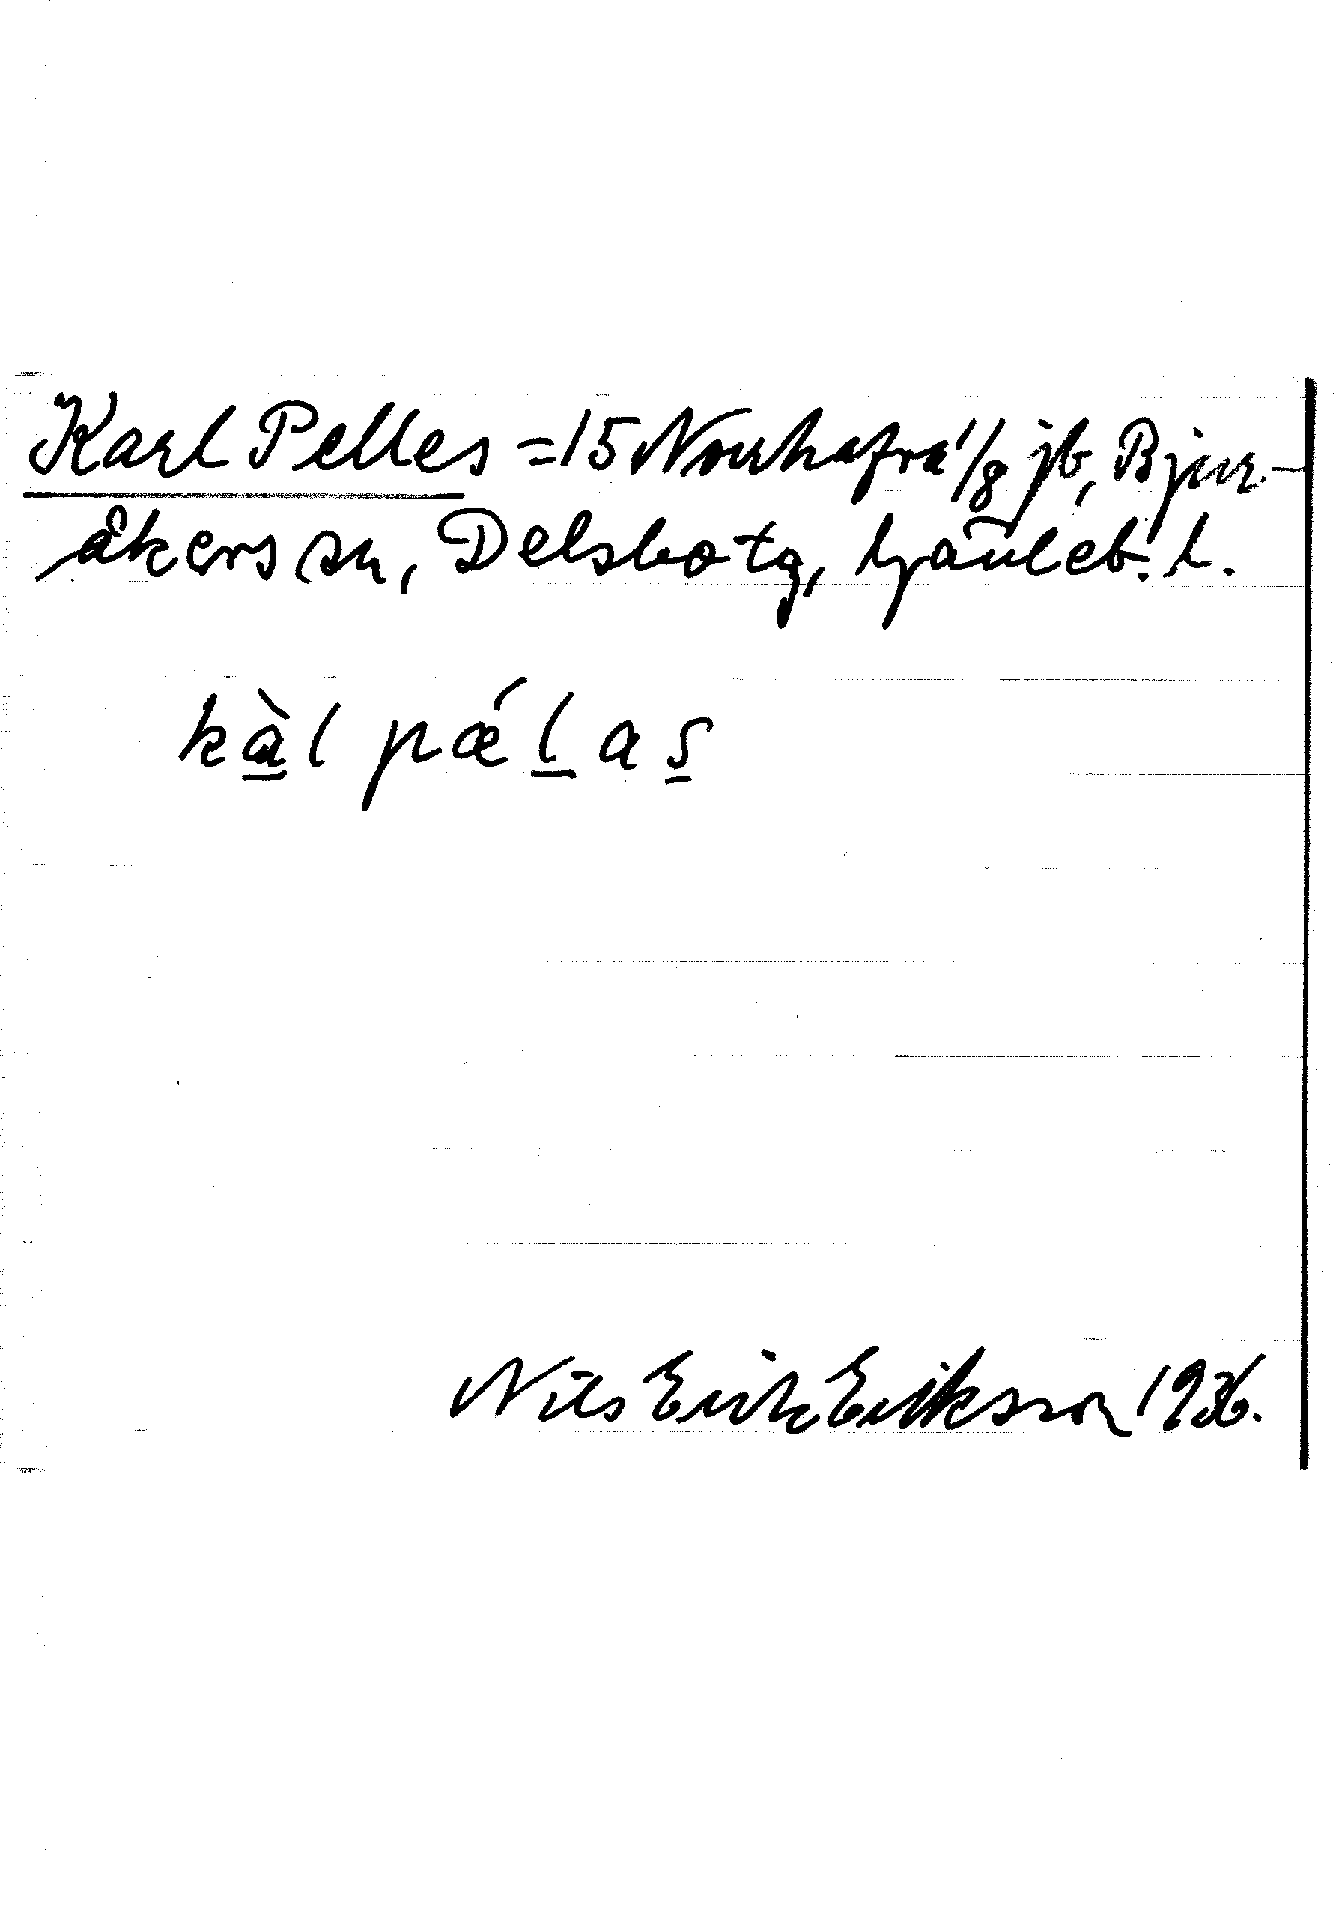 Karl Pelles = 15 Norrhafra 1/8 jb, Bjur-
åkers sn, Delsbo tg, Gävleb. l.
kàl pǽlas
Nils Erik Eriksson 1936.